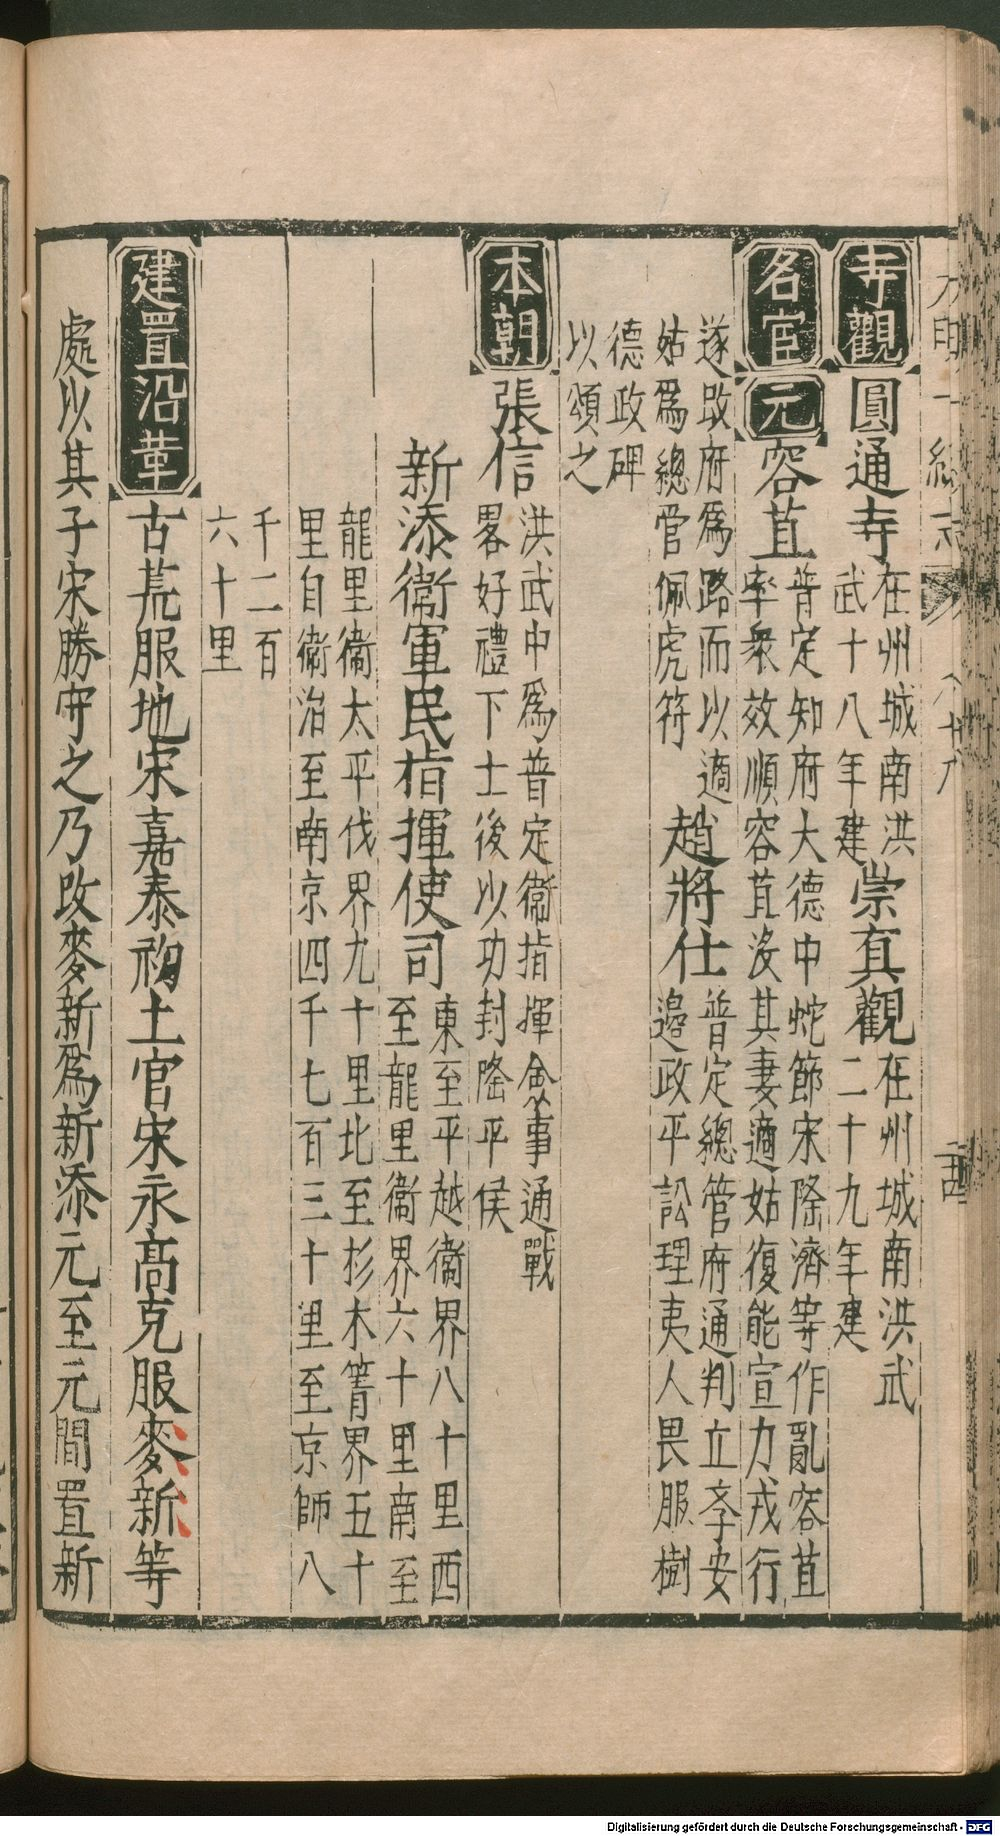 寺觀 圓通寺 在州城南洪武十八年建 崇真觀 在州城南洪武二十九年建
名宦 元 容苴 普定知府大德中蛇節宋隆濟等作亂容苴率衆效順容苴沒其妻適姑復能宣力戎行
遂改府爲路而以適姑爲總管佩虎符 趙將仕 普定總管府通判立孝安邉政平訟理夷人畏服樹
德政碑以頌之
本朝 張信 洪武中爲普定衞指揮僉事通戰畧好禮下士後以功封隆平侯
新添衞軍民指揮使司 東至平越衞界八十里西至龍里衞界六十里南至
龍里衞太平伐界九十里北至杉木箐界五十里自衞治至南京四千七百三十里至京師八
千二百六十里
建置沿革 古荒服地宋嘉泰初土官宋永高克服麥新等
處以其子宋勝守之乃改麥新爲新添元至元間置新
Digitalisierung gefördert durch die Deutsche Forschungsgemeinschaft - DFG